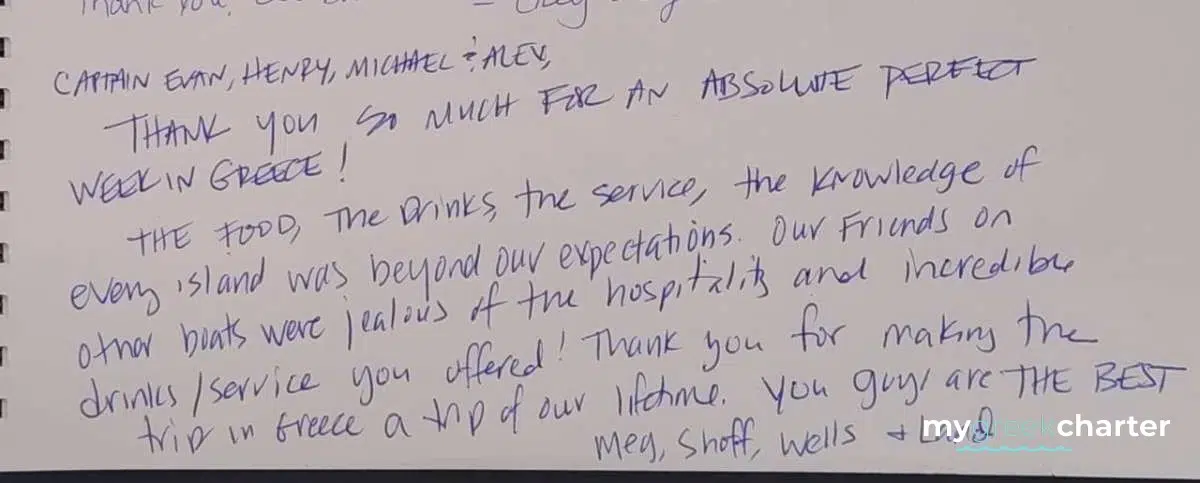 Thank you,
CAPTAIN EVAN, HENRY, MICHAEL & ALEX,
THANK YOU SO MUCH FOR AN ABSOLUTE PERFECT
WEEK IN GREECE!
THE FOOD, THE DRINKS, the service, the knowledge of
every island was beyond our expectations. Our Friends on
other boats were jealous of the hospitality and incredible
drinks/service you offered! Thank you for making the
trip in Greece a trip of our lifetime. You guys are THE BEST
Meg, Shoff, Wells +
mygreekcharter